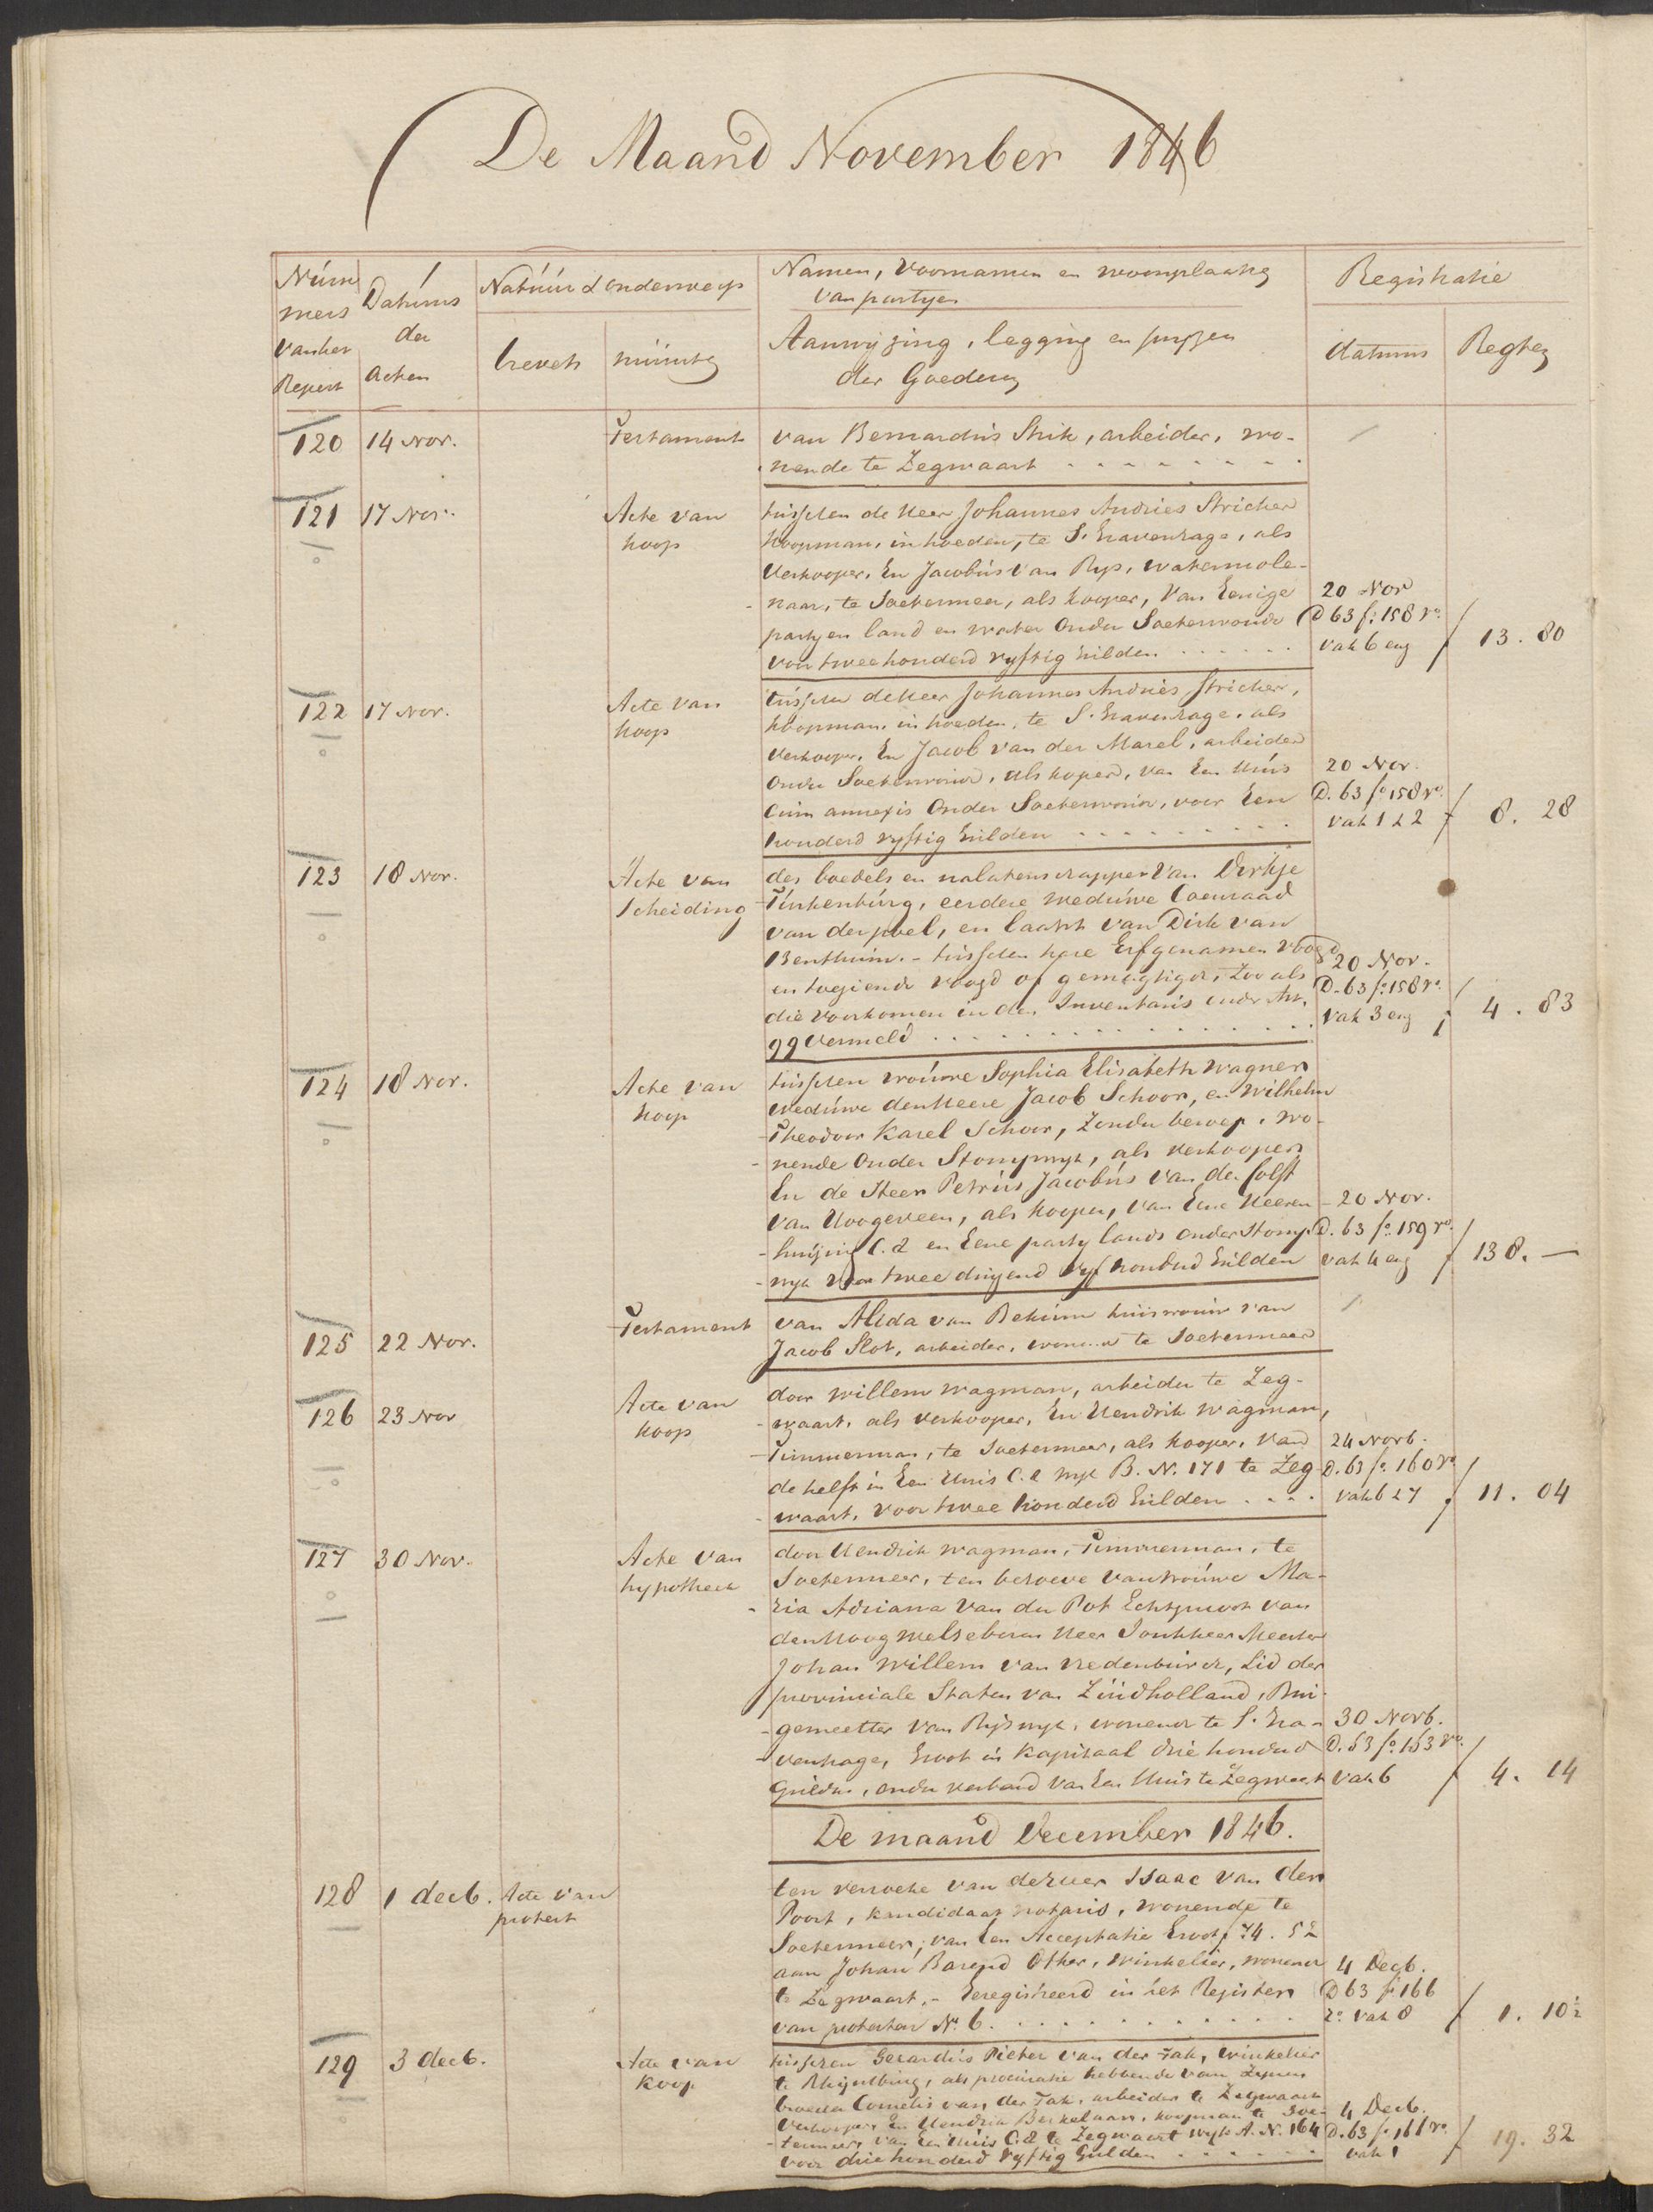 De Maand November 1846
Num
mers
van het
Repert
Datums
der
Acten
Natuur & onderwerp
brevets
minuten
Namen, voornamen en woonplaatsen
van partyen
Aanwyzing, legging en pryzen
der Goederen
Registratie
datums
Regten
120 14 Nov. Testament van Bernardus Strik, arbeider, wo-
nende te Zegwaart
121 17 Nov. Acte van tusschen de Heer Johannes Andries Stricker
koop koopman, in hoeden, te S. Gravenhage, als
verkooper, En Jacobus van Rys, watermole-
naar, te Soetermeer, als kooper, van Eenige 20 Nov
partyen land en water onder Soeterwoude D 63 fo 158 ro
voor tweehonderd vyftig Gulden vak 6 en f 13. 80
122 17 Nov. Acte van tusschen de Heer Johannes Andries Stricker,
koop koopman in hoeden, te S. Gravenhage, als
verkooper, En Jacob van der Marel, arbeider
onder Soeterwoude, als koper, van Een Huis 20 Nov.
cum annexis onder Soeterwoude, voor Een D. 63 fo 158 vo
honderd vyftig Gulden vak 1 & 2 f 8. 28
123 18 Nov. Acte van des boedels en nalatenschappen van Dirkje
Scheiding Turkenburg, eerdere weduwe Coenraad
van der poel, en laatst van Dirk van
Benthuim. - tusschen hare Erfgenamen voogd
en toeziende voogd of gemagtigde, Zoo als 20 Nov.
die voorkomen in den Inventaris onder Art. D. 63 fo 158 vo
99 vermeld vak 3 en f 4. 83
124 18 Nov. Acte van tusschen vrouwe Sophia Elisabeth Wagner
koop weduwe den Heere Jacob Schoor, en Wilhelm
Theodoor Karel Schoor, Zonder beroep, wo-
nende onder Stompwyk, als verkoopers
En de Heer Petrus Jacobus van der
van Hoogeveen, als kooper, van Eene Heeren 20 Nov.
huizing C.A en Eene party lands onder Stomp D. 63 fo 159 vo
wyk voor twee duizend vyf honderd Gulden vak 4 en f 138. —
125 22 Nov. Testament van Alida van Bekum huisvrouw van
Jacob Slot, arbeider, wonende te Soetermeer
126 23 Nov Acte van door Willem Wagman, arbeider te Zeg-
koop waart, als verkooper, En Hendrik Wagman,
Timmerman, te Soetermeer, als kooper, van 24 Novb.
de helft in Een Huis C.A wyk B. N. 171 te Zeg- D. 63 fo 160 vo
waart, voor twee honderd Gulden vak 6 & 7 f 11. 04
127 30 Nov. Acte van door Hendrik Wagman, Timmerman, te
hypotheek Soetermeer, ten behoeve van vrouwe Ma-
ria Adriana van der Pot Echtgenoot van
den Hoog Welgeboren Heer Jonkheer Meester
Johan Willem van Vredenburch, Lid der
provinciale Staten van Zuidholland, Bur-
gemeester van Ryswyk, wonende te S. Gra- 30 Novb.
venhage, Groot in kapitaal drie honderd D. 63 fo 163 vo
Gulden, onder verband van Een Huis te Zegwaart vak 6 f 4. 14
De maand December 1846.
128 1 decb. Acte van ten verzoeke van de Heer Isaac van der
protest Poort, kandidaat notaris, wonende te
Soetermeer; van Een Acceptatie Groot f 74. 52
aan Johan Barend Other, winkelier, wonende 4 Decb.
te Zegwaart, - Geregistreerd in het Register D 63 fo 166
van protesten No. 6. vo vak 8 f 1. 10½
129 3 decb. Acte van tusschen Gerardus Pieter van der Tak, winkelier
koop te Rhynsburg, als procuratie hebbende van Zynen
broeder Cornelis van der Tak, arbeider te Zegwaart
verkooper, En Hendrik Berkelaar, koopman te Soe- 4 Decb.
termeer, van Een Huis C.A te Zegwaart wyk A. N. 164 D. 63 fo 166 vo
voor drie honderd vyftig Gulden vak 1 f 19. 32